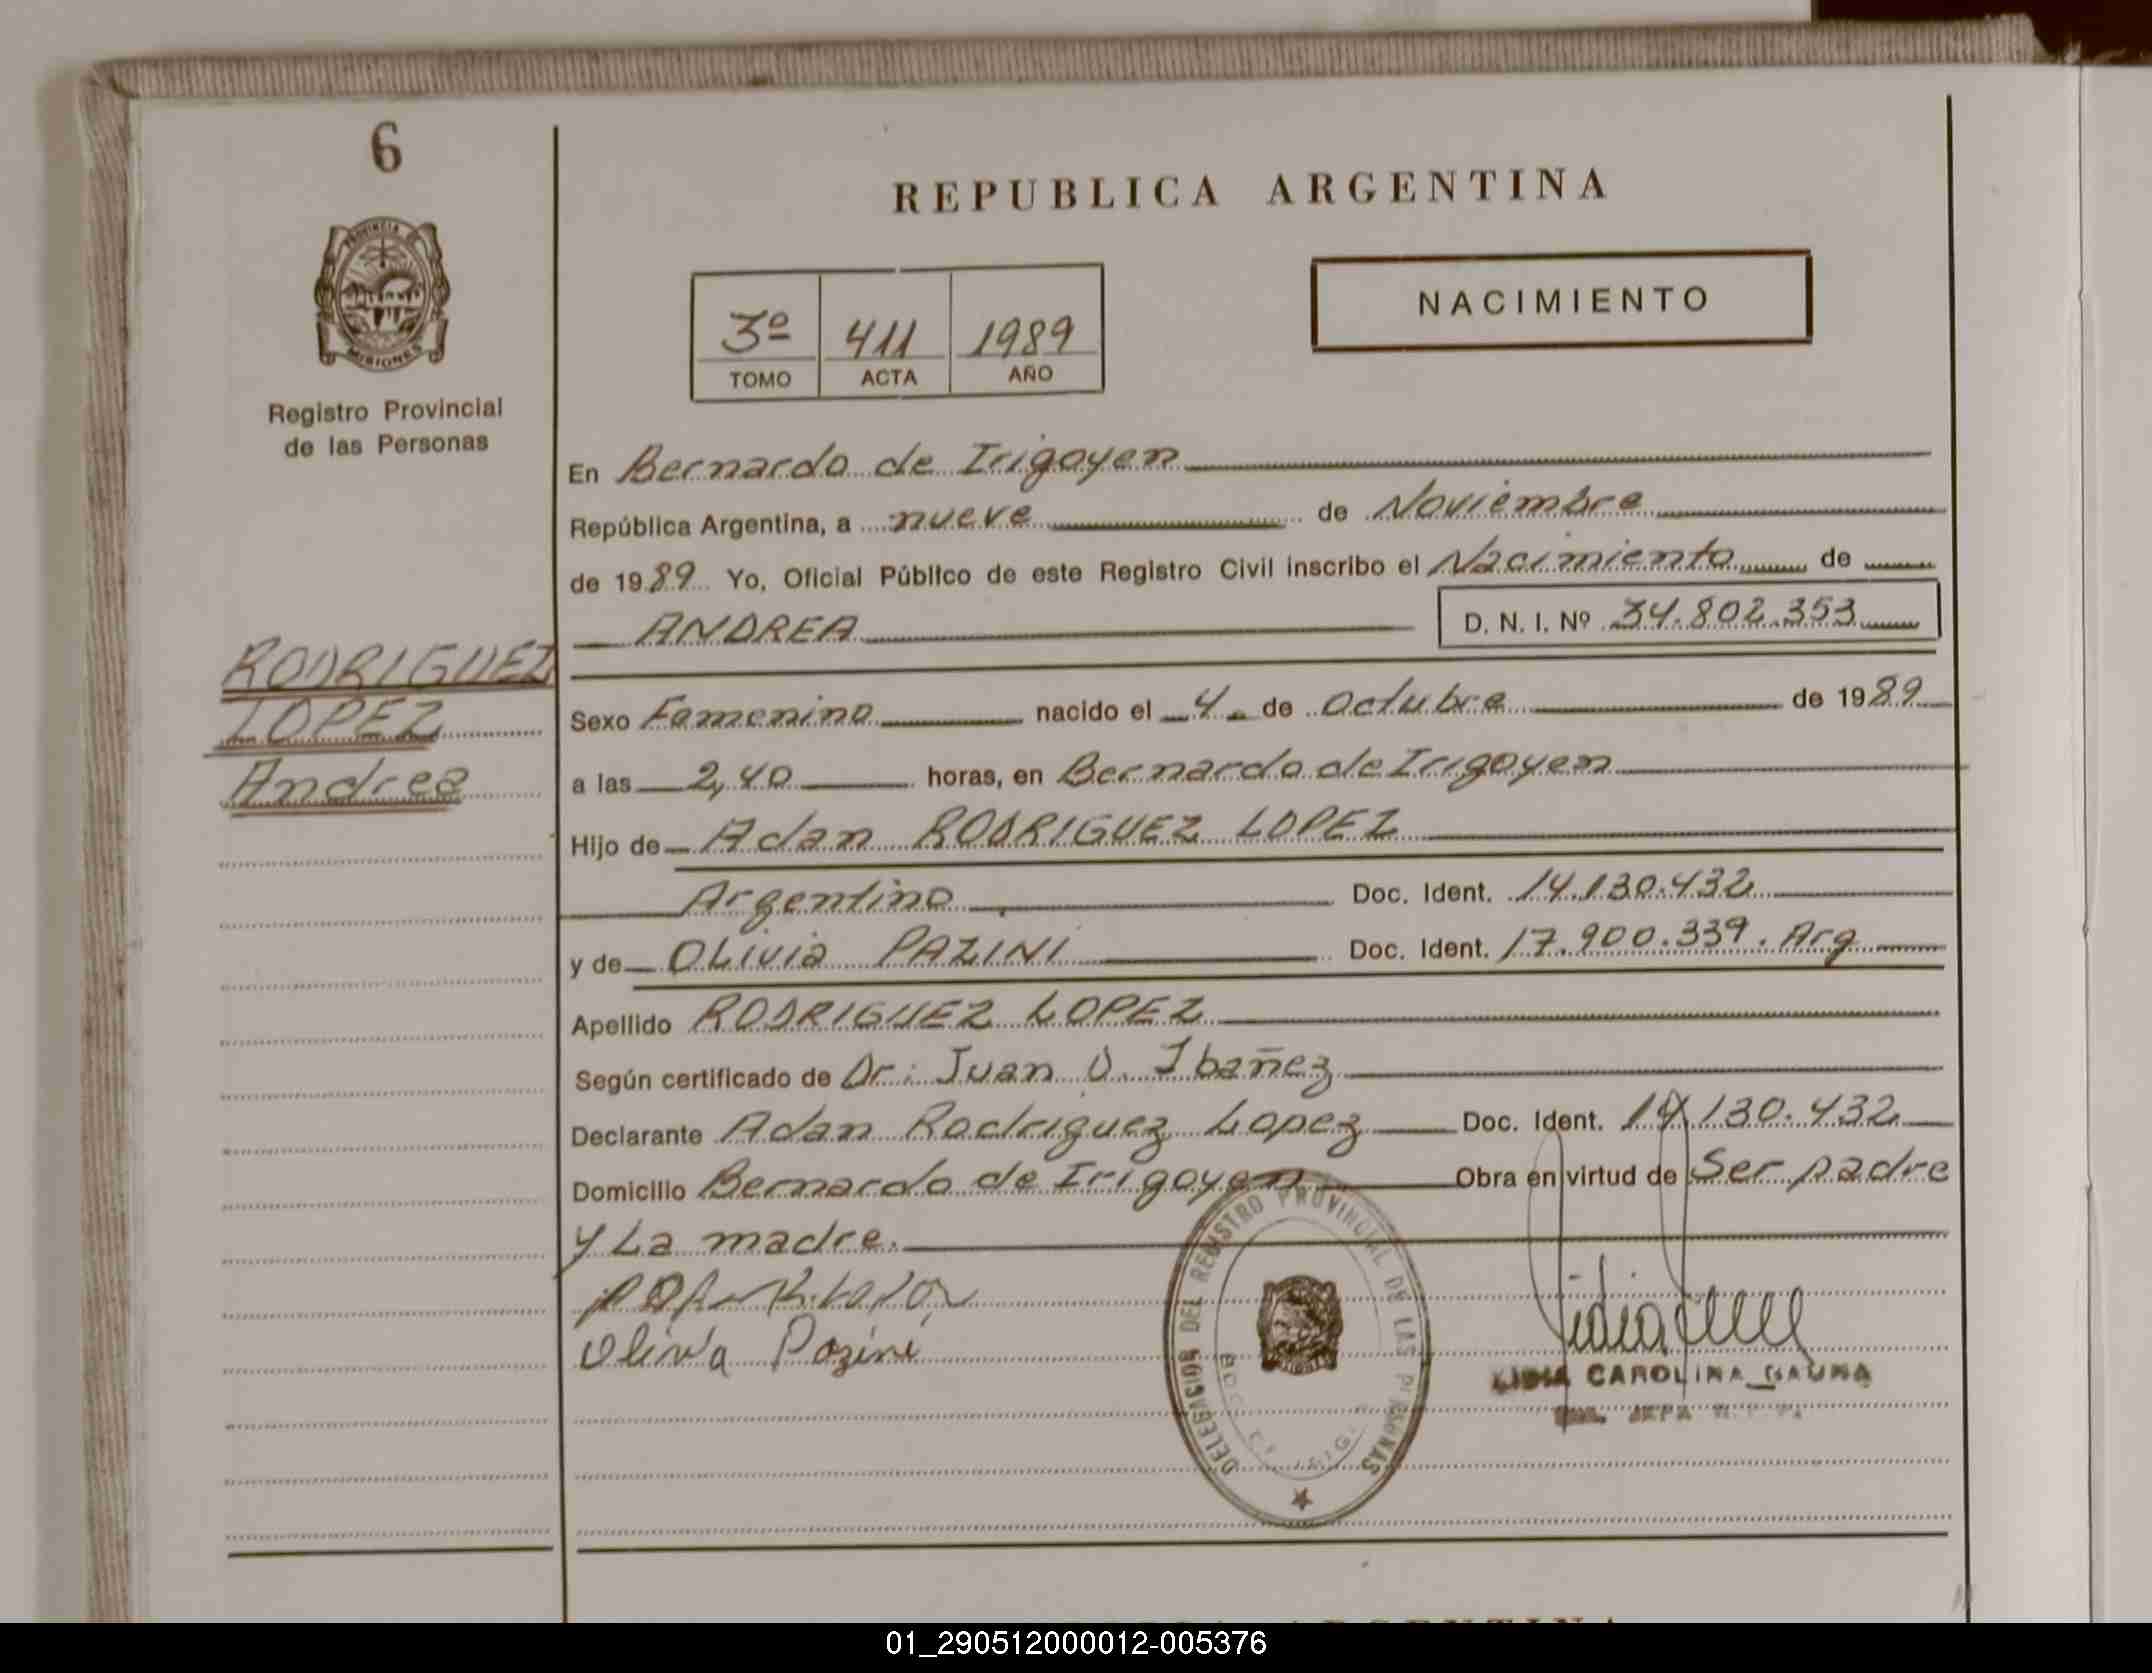 6
PROVINCIA DE
MISIONES
Registro Provincial
de las Personas
RODRIGUEZ
LOPEZ
Andrea
REPUBLICA ARGENTINA
3º 411 1989
TOMO ACTA AÑO
NACIMIENTO
En Bernardo de Irigoyen
República Argentina, a nueve de Noviembre
de 1989 Yo, Oficial Público de este Registro Civil inscribo el Nacimiento de
ANDREA D. N. I. Nº 34.802.353
Sexo Femenino nacido el 4 de Octubre de 1989
a las 2,40 horas, en Bernardo de Irigoyen
Hijo de Adan RODRIGUEZ LOPEZ
Argentino Doc. Ident. 14.130.432
y de OLivia PAZINI Doc. Ident. 17.900.339. Arg
Apellido RODRIGUEZ LOPEZ
Según certificado de Dr: Juan O. Ibañez
Declarante Adan Rodriguez Lopez Doc. Ident. 14.130.432
Domicilio Bernardo de Irigoyen Obra en virtud de Ser padre
y La madre.
Olivia Pozini
DELEGACION DEL REGISTRO PROVINCIAL DE LAS PERSONAS
LIDIA CAROLINA GAUNA
01_290512000012-005376